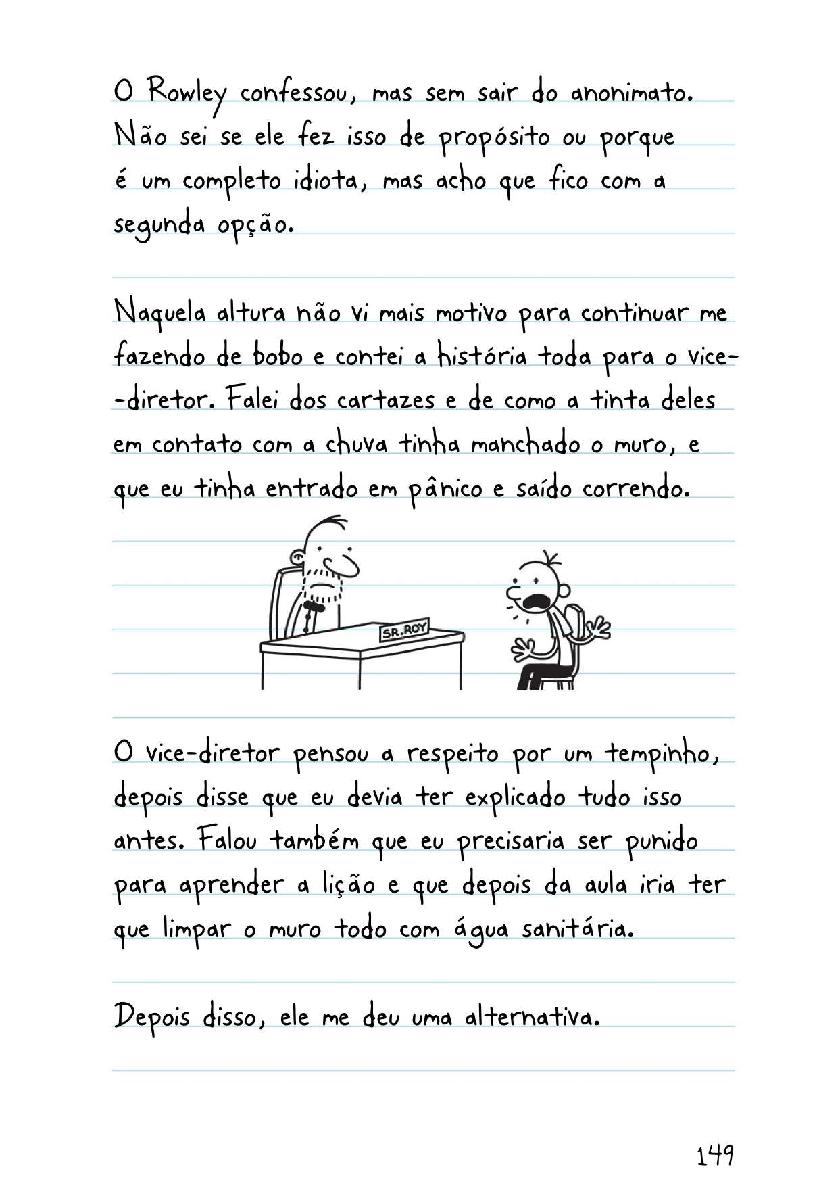 O Rowley confessou, mas sem sair do anonimato.
Não sei se ele fez isso de propósito ou porque
é um completo idiota, mas acho que fico com a
segunda opção.
Naquela altura não vi mais motivo para continuar me
fazendo de bobo e contei a história toda para o vice-
-diretor. Falei dos cartazes e de como a tinta deles
em contato com a chuva tinha manchado o muro, e
que eu tinha entrado em pânico e saído correndo.
SR. ROY
O vice-diretor pensou a respeito por um tempinho,
depois disse que eu devia ter explicado tudo isso
antes. Falou também que eu precisaria ser punido
para aprender a lição e que depois da aula iria ter
que limpar o muro todo com água sanitária.
Depois disso, ele me deu uma alternativa.
149